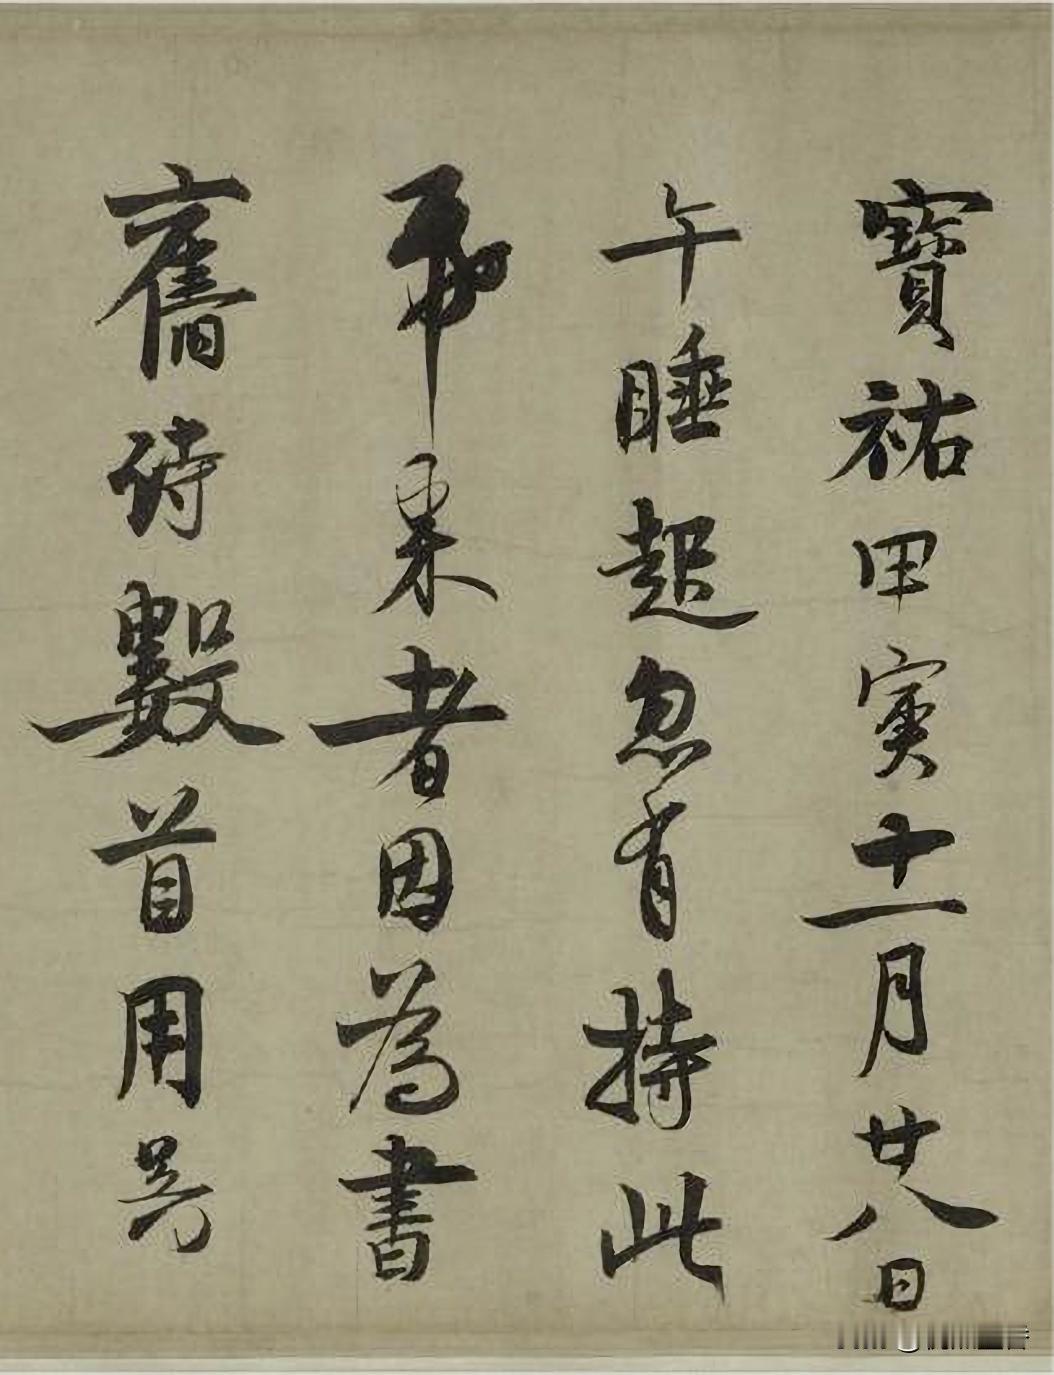 寶祐甲寅十一月廿八日
午睡起忽有持此
者因為書
舊詩數首用